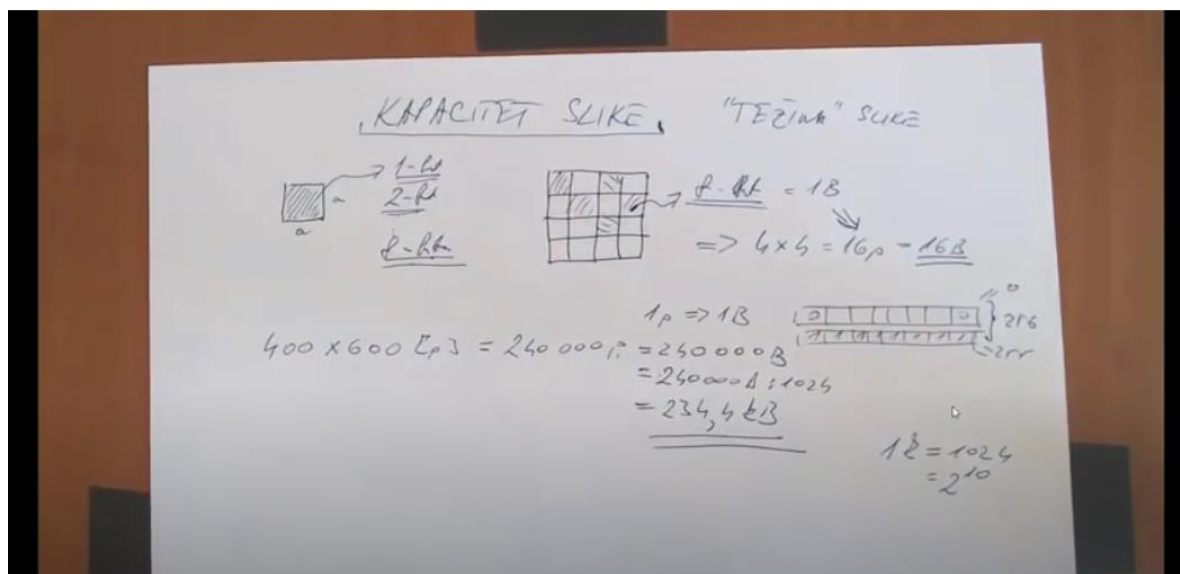 KAPACITET SLIKE. "TEŽINA" SLIKE
1-bit
2-bit
8-bita
a
a
8-bit = 1B
=> 4x4 = 16p - 16B
1p => 1B
0 0
0
256
1 1 1 1 1 1 1 1
=255
400 x 600 [p] = 240 000 p = 240 000 B
= 240000B : 1024
= 234,4 kB
1k = 1024
= 2^10